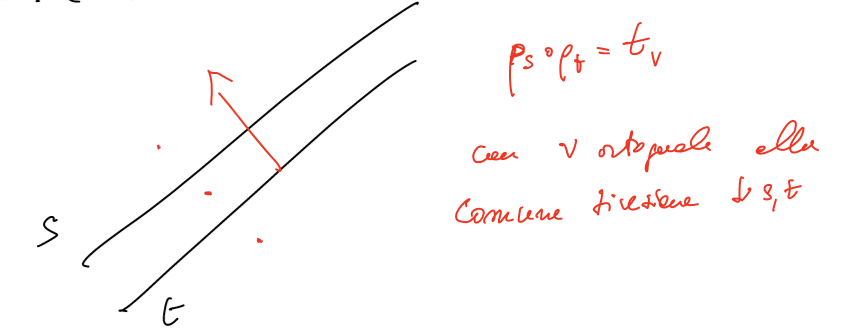 ρ_s ∘ ρ_t = t_v
con v ortogonale alla
comune direzione di s, t
S
t